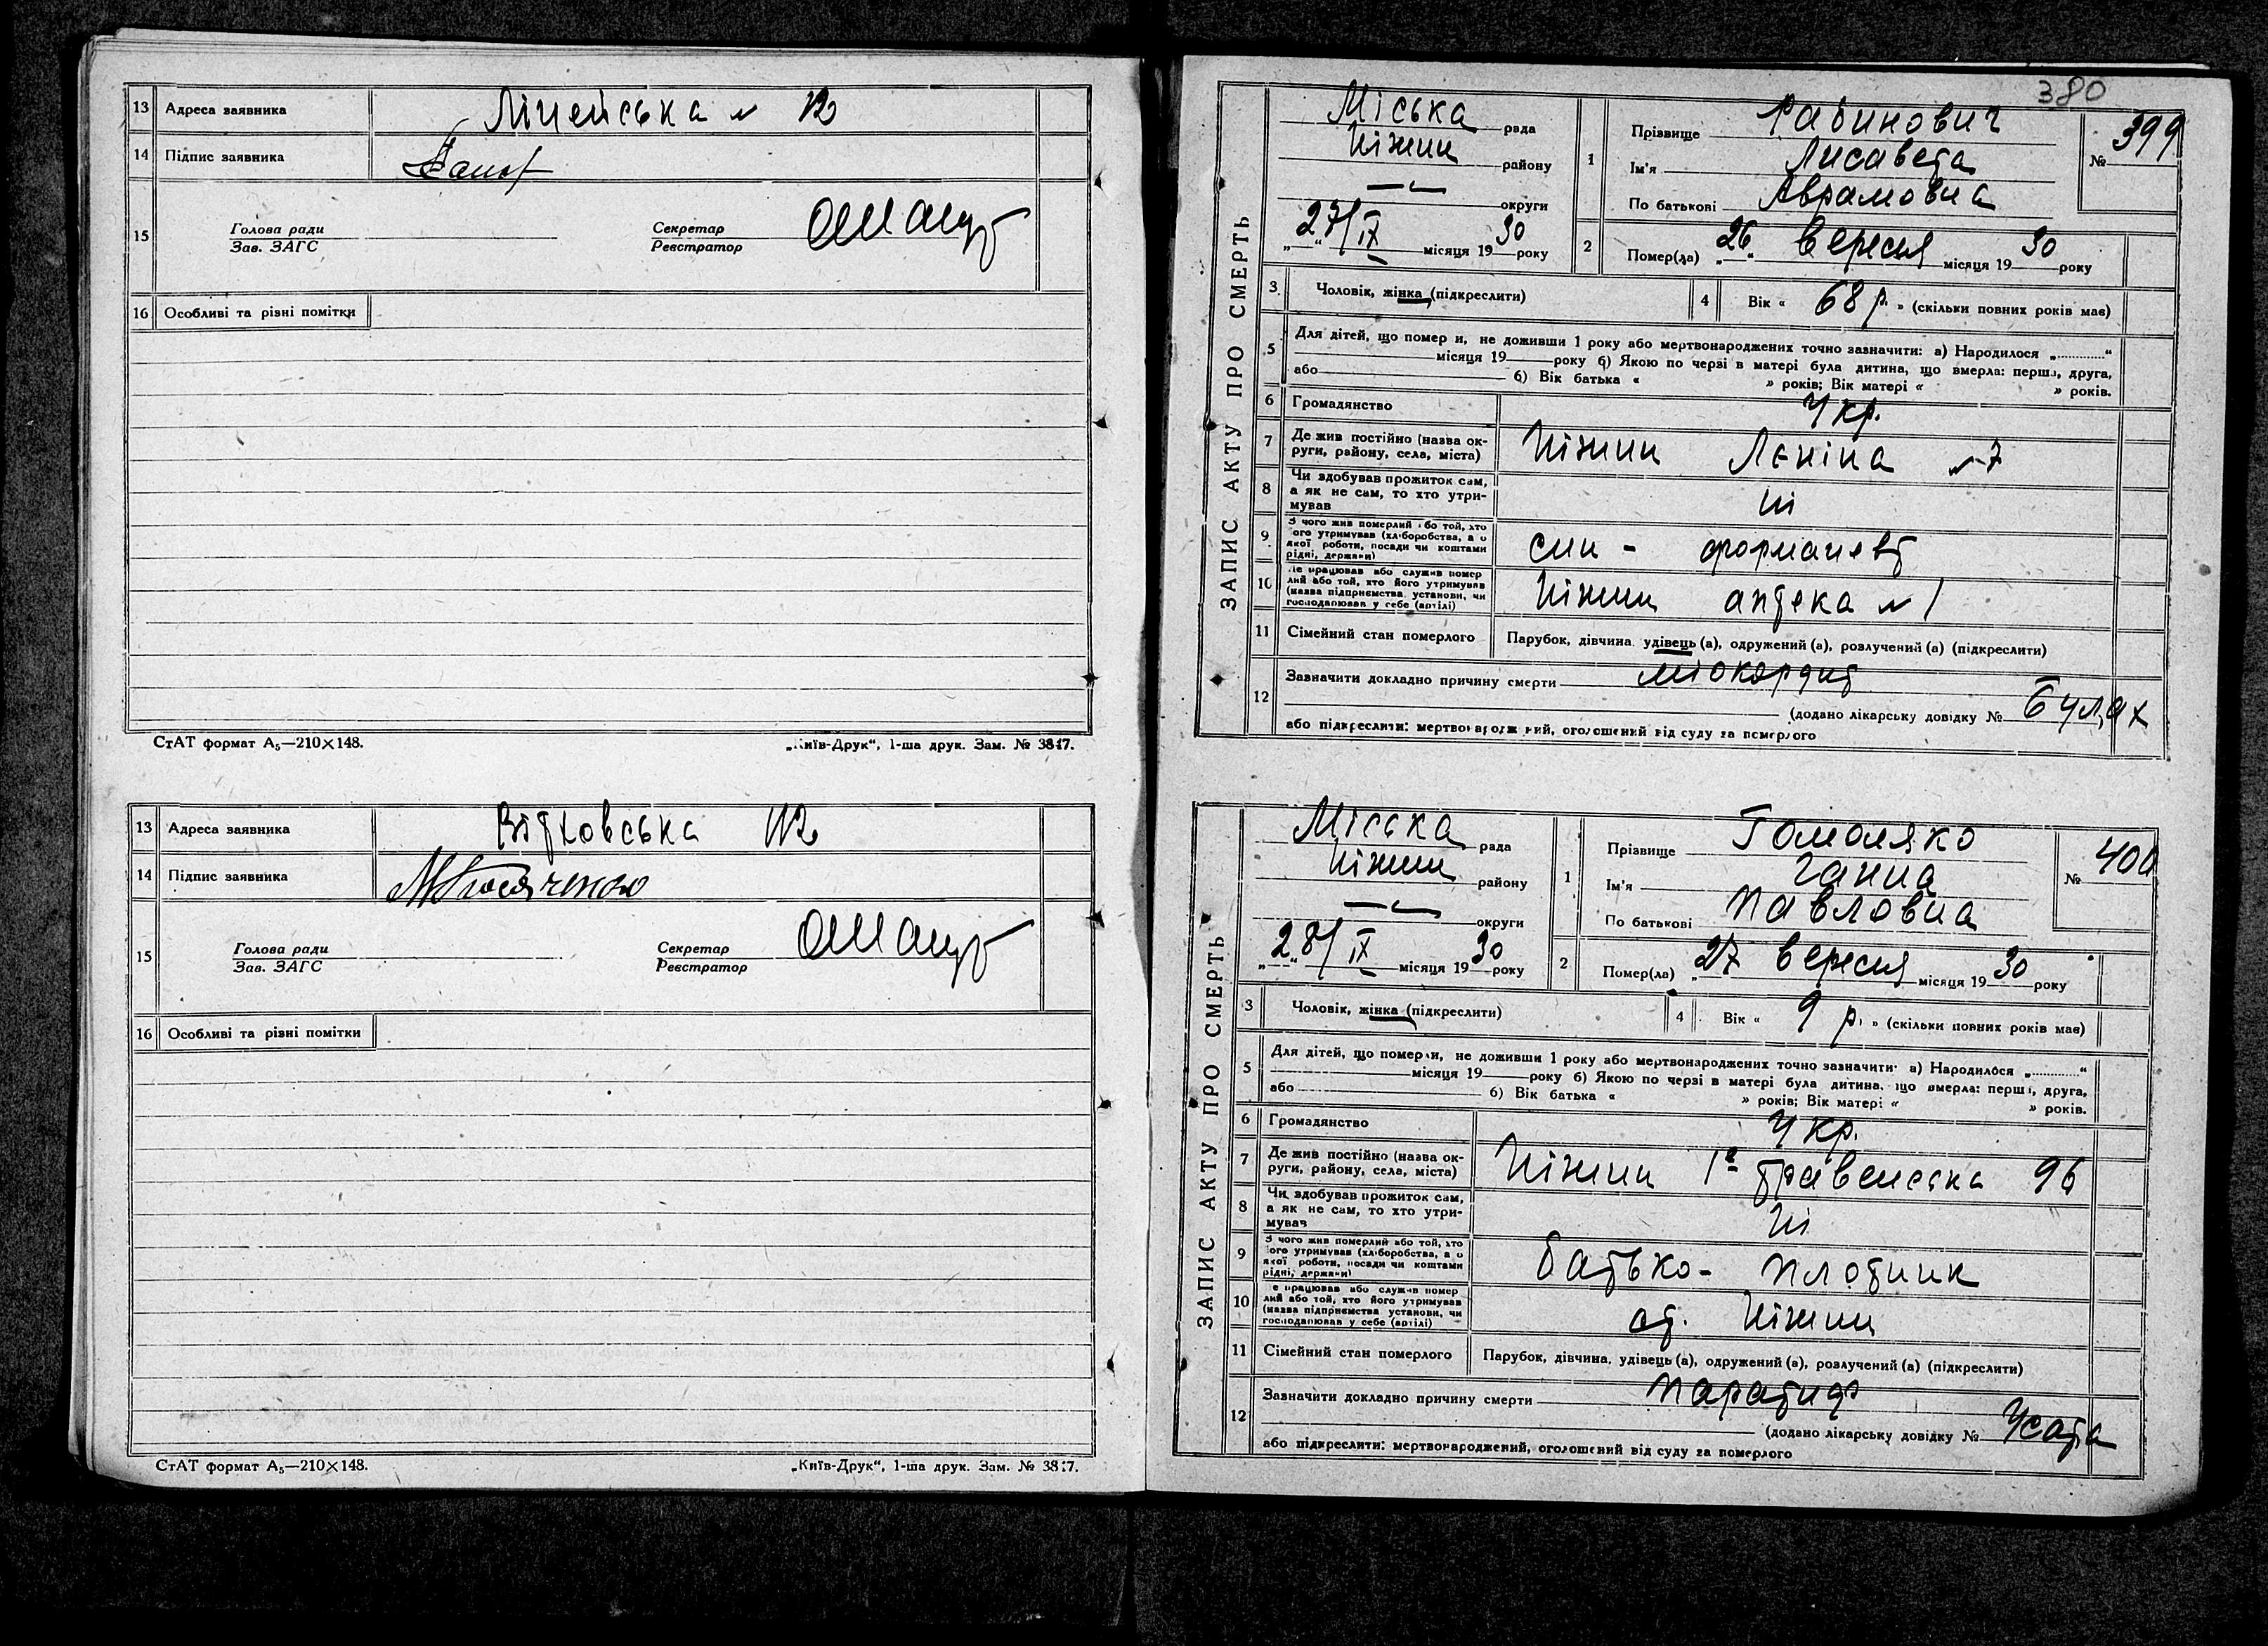 13 Адреса заявника Ліцейська № 12
14 Підпис заявника
15 Голова ради Секретар
Зав. ЗАГС Реєстратор
16 Особливі та різні помітки
СтАТ формат А₅—210×148. „Київ-Друк“, 1-ша друк. Зам. № 3817.
13 Адреса заявника 112
14 Підпис заявника
15 Голова ради Секретар
Зав. ЗАГС Реєстратор
16 Особливі та різні помітки
СтАТ формат А₅—210×148. „Київ-Друк“, 1-ша друк. Зам. № 3817.
380
ЗАПИС АКТУ ПРО СМЕРТЬ
Міська рада
Ніжин району
округи
27/IX місяця 1930 року
1 Прізвище Рабинович
Ім'я Лисавета
По батькові Аврамовна
№ 399
2 Помер(ла) „26“ вересня місяця 1930 року
3 Чоловік, жінка (підкреслити) 4 Вік « 68 р. » (скільки повних років має)
5 Для дітей, що померли, не доживши 1 року або мертвонароджених точно зазначити: а) Народилося „............“
місяця 19 року б) Якою по черзі в матері була дитина, що вмерла: перша, друга,
або б) Вік батька « » років; Вік матері « » років.
6 Громадянство Укр.
7 Де жив постійно (назва ок-
руги, району, села, міста) Ніжин Леніна № 7
8 Чи здобував прожиток сам,
а як не сам, то хто утри-
мував ні
9 З чого жив померлий або той, хто
його утримував (хліборобства, а о
якої роботи, посади чи коштами
рідні, держави) син - формацевт
10 Де працював або служив помер
лий або той, хто його утримував
(назва підприємства, установи, чи
господарював у себе (артілі) Ніжин аптека № 1
11 Сімейний стан померлого Парубок, дівчина, удівець (а), одружений (а), розлучений (а) (підкреслити)
12 Зазначити докладно причину смерти міокардит
(додано лікарську довідку № Булах
або підкреслити: мертвонароджений, оголошений від суду за померлого
ЗАПИС АКТУ ПРО СМЕРТЬ
Міська рада
Ніжин району
округи
„28“/IX місяця 1930 року
1 Прізвище Гомоляко
Ім'я Ганна
По батькові Павловна
№ 400
2 Помер(ла) „27 вересня місяця 1930 року
3 Чоловік, жінка (підкреслити) 4 Вік « 9 р. » (скільки повних років має)
5 Для дітей, що померли, не доживши 1 року або мертвонароджених точно зазначити: а) Народилося „............“
місяця 19 року б) Якою по черзі в матері була дитина, що вмерла: перша, друга,
або б) Вік батька « » років; Вік матері « » років.
6 Громадянство Укр.
7 Де жив постійно (назва ок-
руги, району, села, міста) Ніжин 96
8 Чи здобував прожиток сам,
а як не сам, то хто утри-
мував ні
9 З чого жив померлий або той, хто
його утримував (хліборобства, а о
якої роботи, посади чи коштами
рідні, держави) батько - плотник
10 Де працював або служив помер
лий або той, хто його утримував
(назва підприємства, установи, чи
господарював у себе (артілі) ст. Ніжин
11 Сімейний стан померлого Парубок, дівчина, удівець (а), одружений (а), розлучений (а) (підкреслити)
12 Зазначити докладно причину смерти паратиф
(додано лікарську довідку № Усата
або підкреслити: мертвонароджений, оголошений від суду за померлого